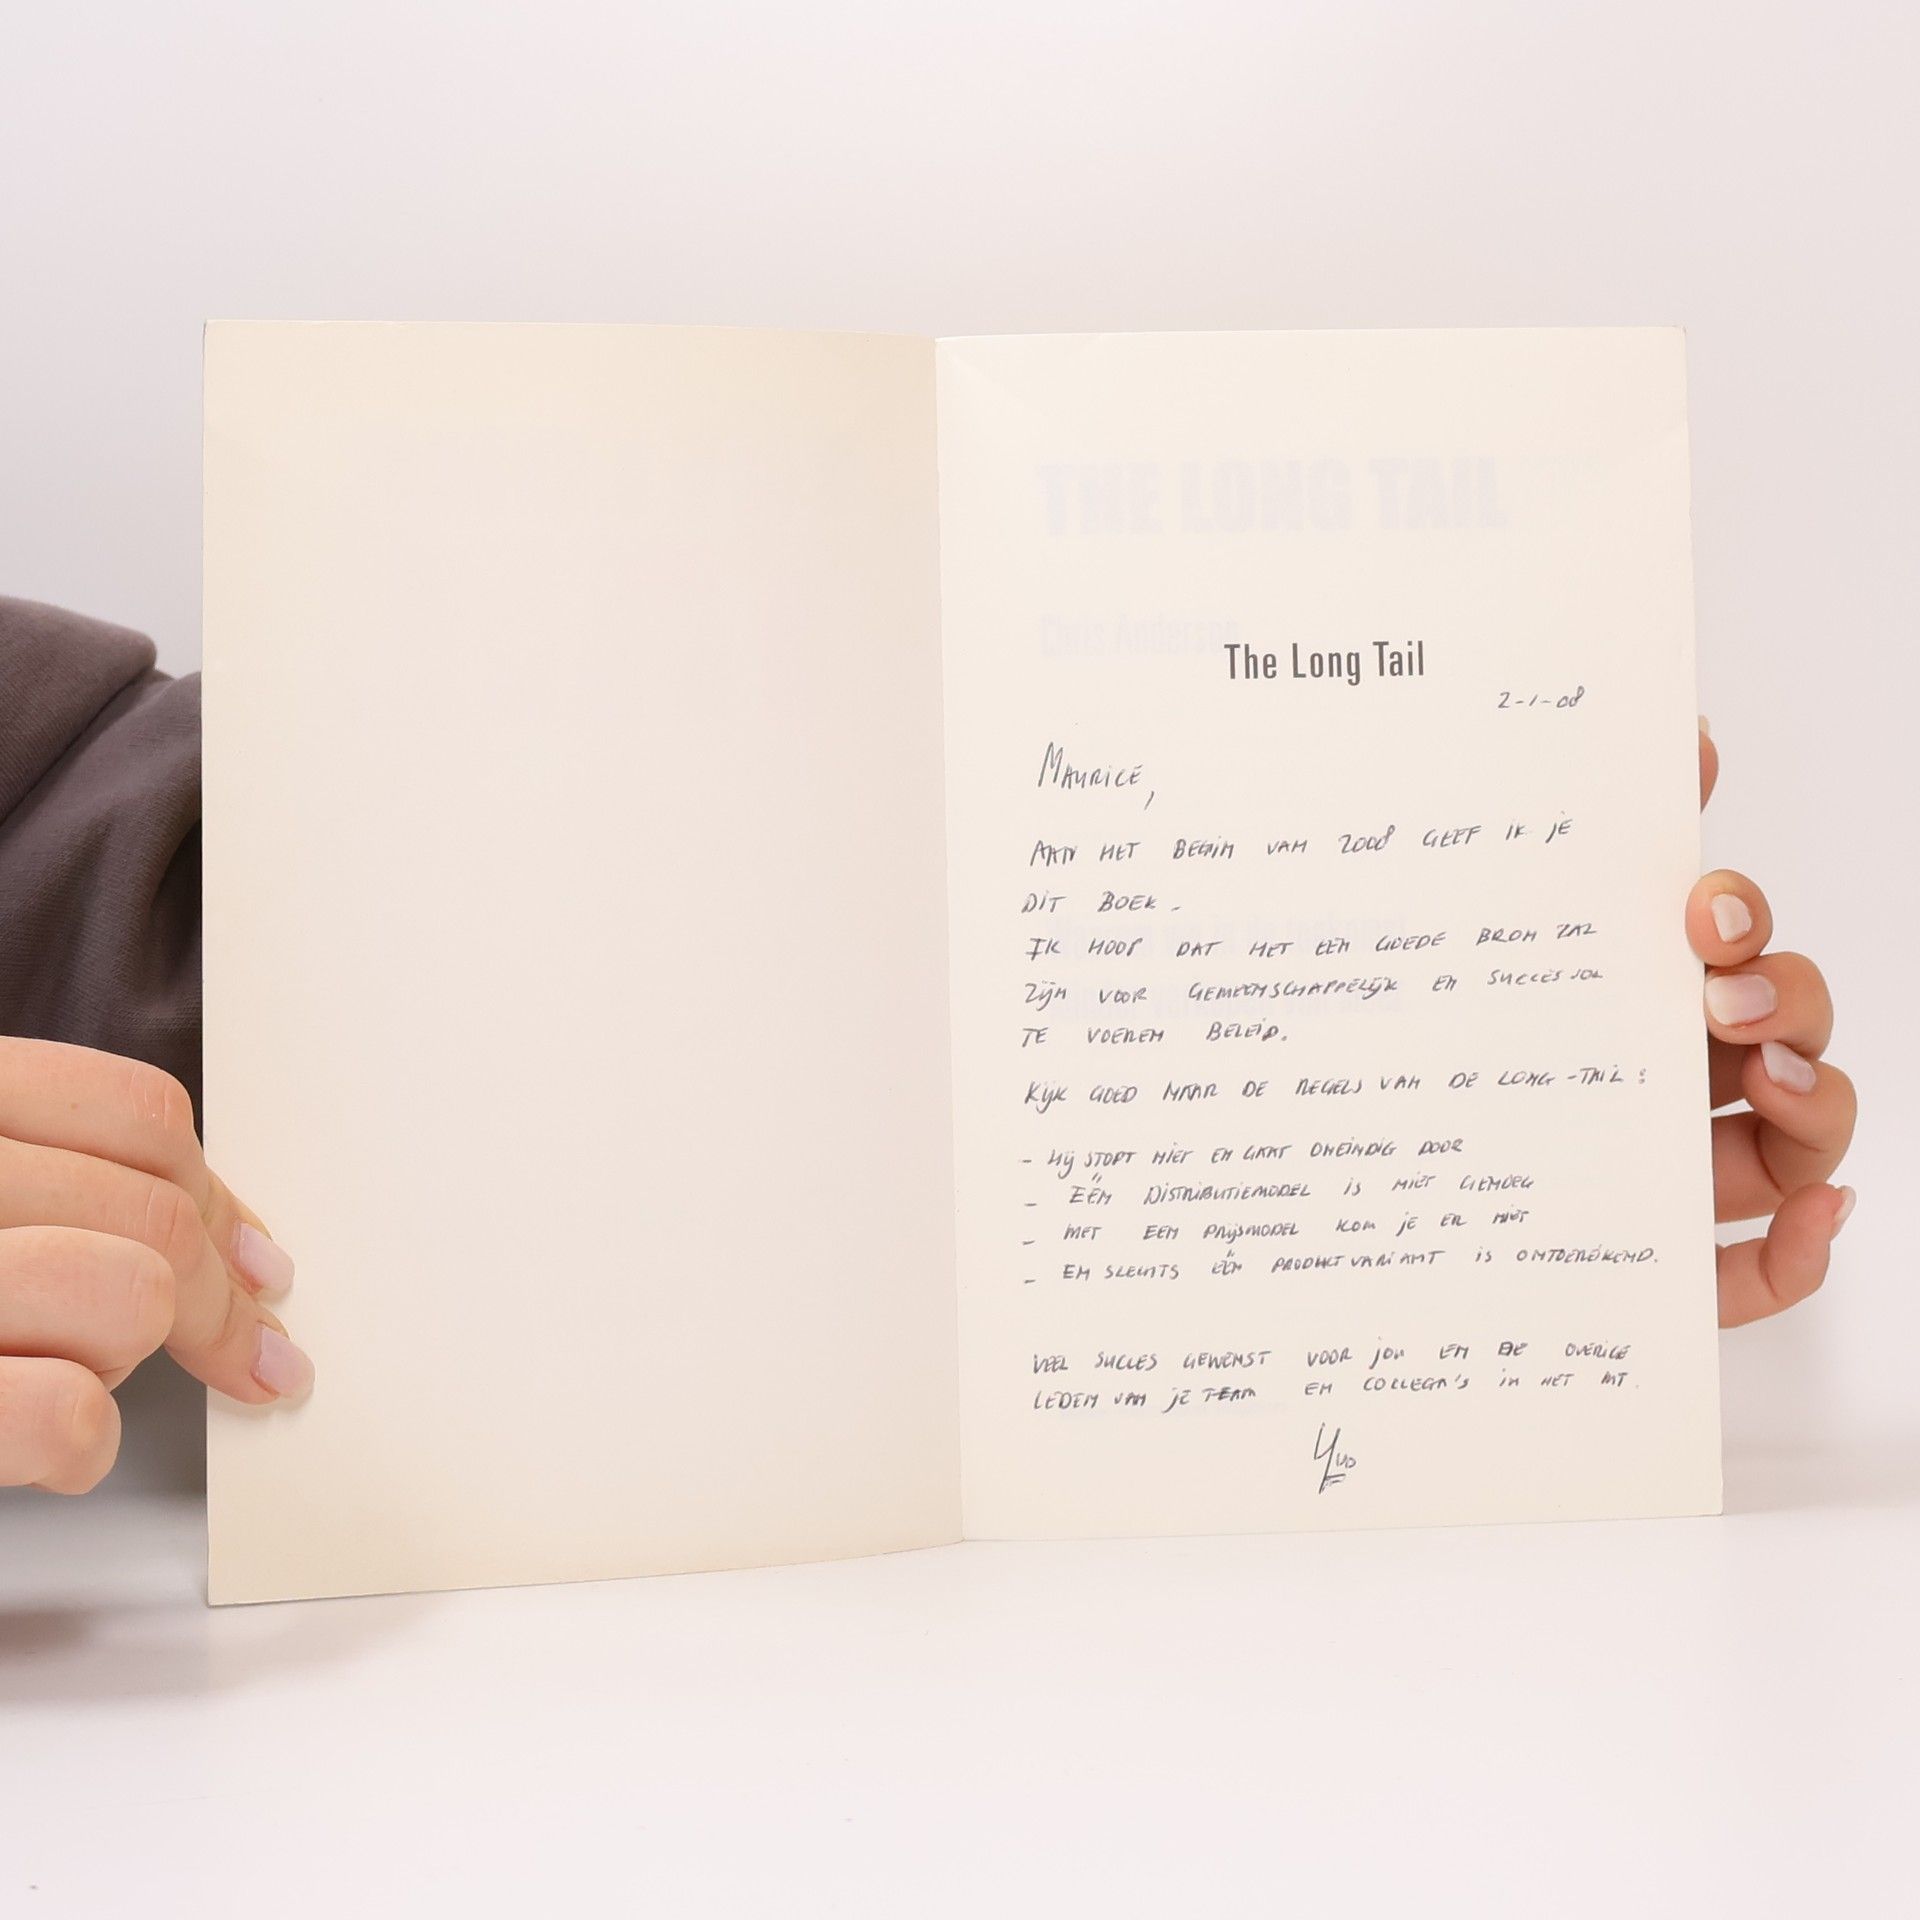 THE LONG TAIL
Chris Anderson
The Long Tail
2-1-08
MAURICE,
AAN HET BEGIN VAN 2008 GEEF IK JE
DIT BOEK.
IK HOOP DAT HET EEN GOEDE BRON ZAL
ZIJN VOOR GEMEENSCHAPPELIJK EN SUCCESVOL
TE VOEREN BELEID.
KIJK GOED NAAR DE REGELS VAN DE LONG-TAIL:
- HIJ STOPT NIET EN GAAT ONEINDIG DOOR
- ÉÉN DISTRIBUTIEMODEL IS NIET GENOEG
- MET EEN PRIJSMODEL KOM JE ER NIET
- EN SLECHTS ÉÉN PRODUCTVARIANT IS ONTOEREIKEND.
VEEL SUCCES GEWENST VOOR JOU EN DE OVERIGE
LEDEN VAN JE TEAM EN COLLEGA'S IN HET MT.